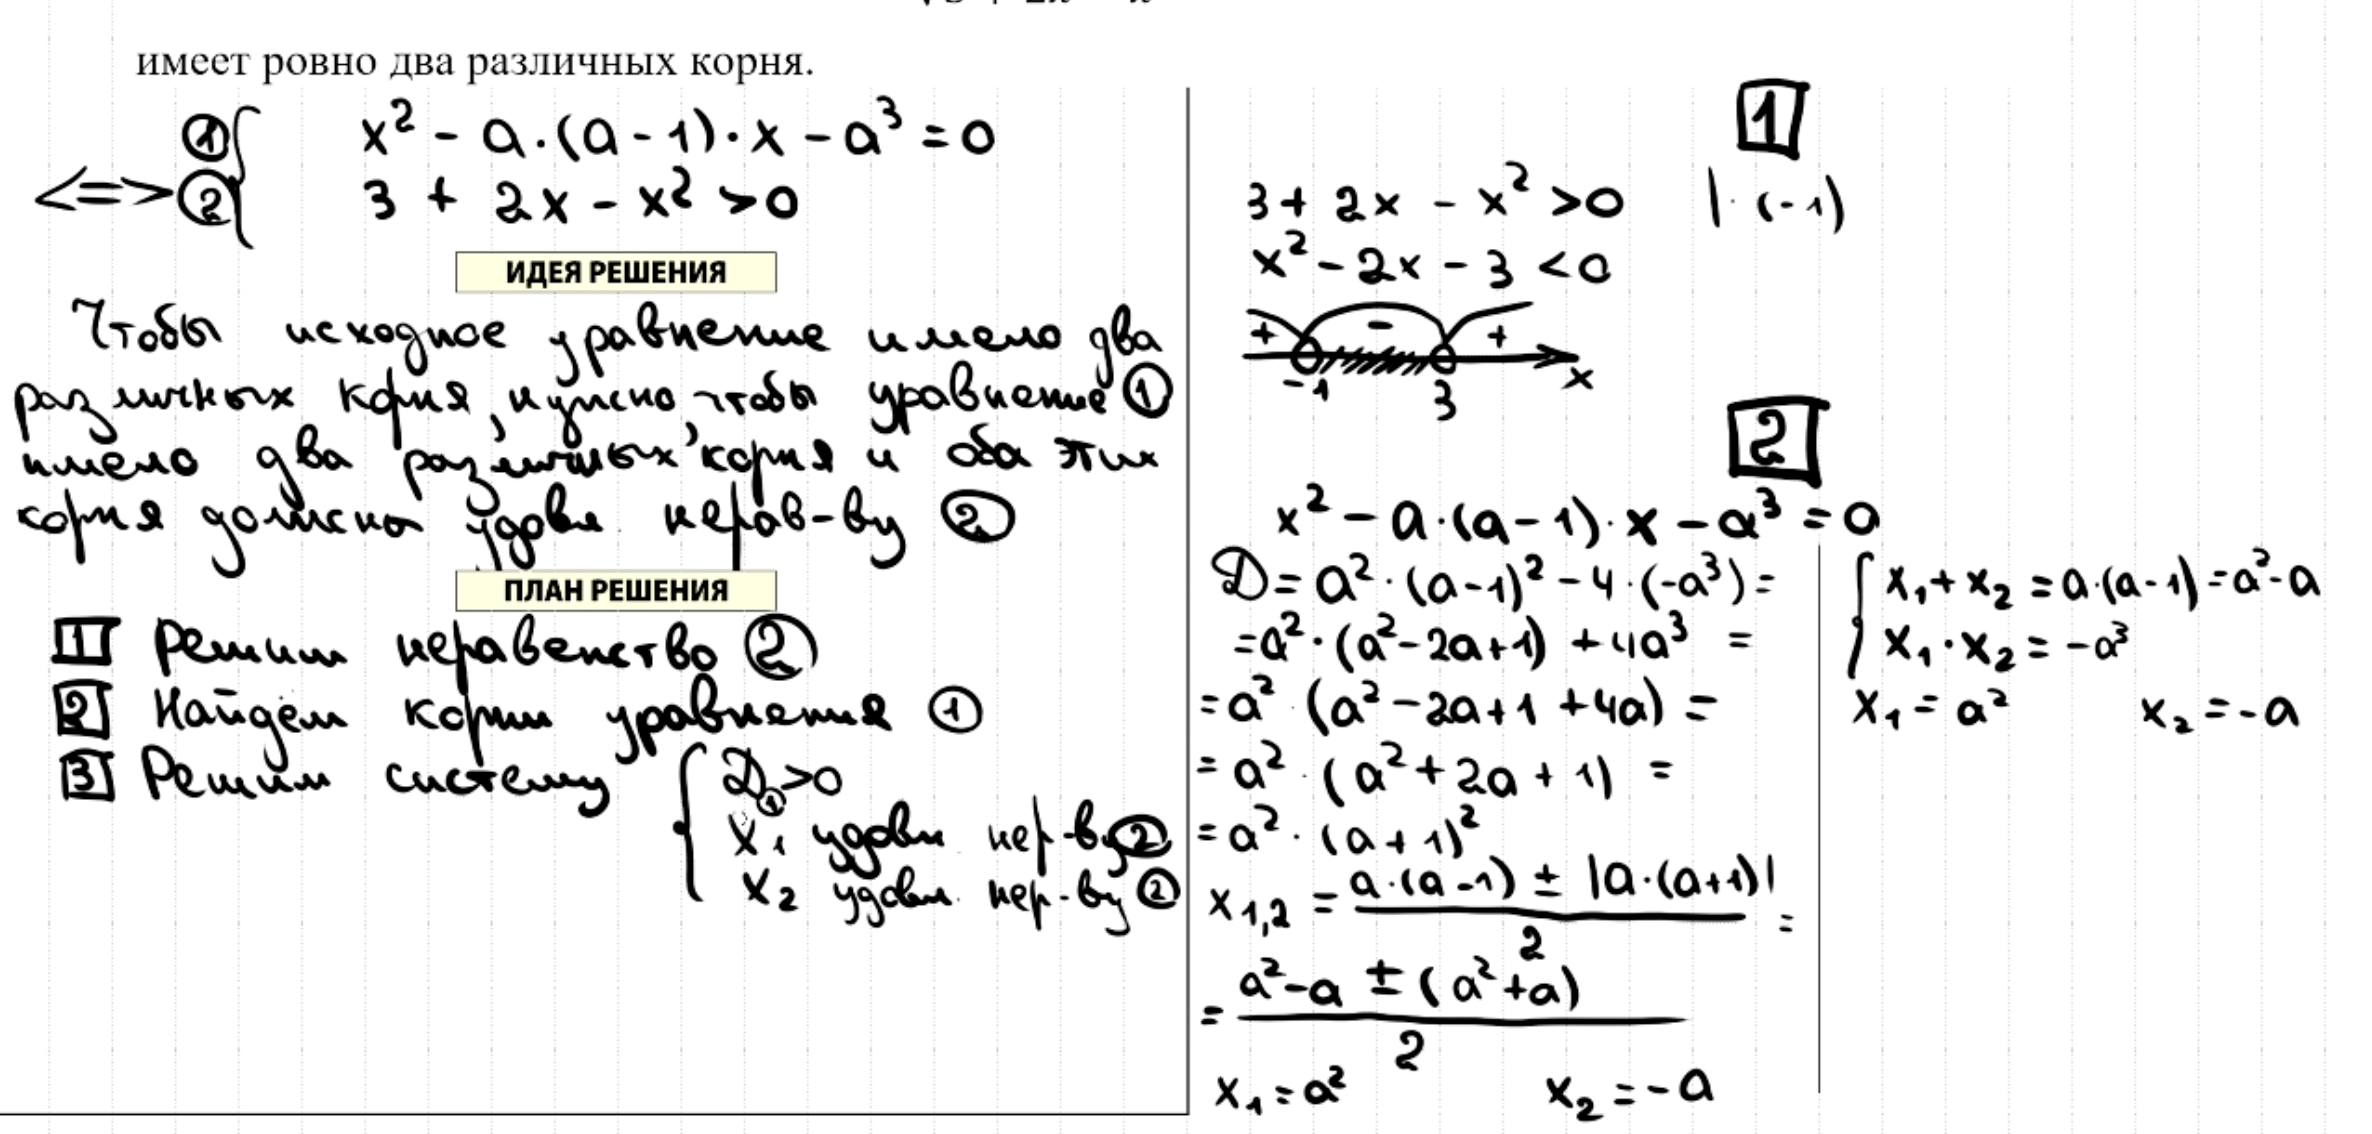 имеет ровно два различных корня.
① x² - a·(a-1)·x - a³ = 0
<=> ② 3 + 2x - x² > 0
ИДЕЯ РЕШЕНИЯ
Чтобы исходное уравнение имело два
различных корня, нужно, чтобы уравнение ①
имело два различных корня и оба этих
корня должны удовл. нерав-ву ②
ПЛАН РЕШЕНИЯ
1 Решим неравенство ②
2 Найдём корни уравнения ①
3 Решим систему { D① > 0
x₁ удовл. нер-ву ②
x₂ удовл. нер-ву ②
1
3 + 2x - x² > 0 | ·(-1)
x² - 2x - 3 < 0
+ - +
-1 3 x
2
x² - a·(a-1)·x - a³ = 0
D = a²·(a-1)² - 4·(-a³) =
= a²·(a² - 2a + 1) + 4a³ =
= a²·(a² - 2a + 1 + 4a) =
= a²·(a² + 2a + 1) =
= a²·(a+1)²
x₁,₂ = (a·(a-1) ± |a·(a+1)|) / 2 =
= (a² - a ± (a² + a)) / 2
x₁ = a² x₂ = -a
{ x₁ + x₂ = a·(a-1) = a² - a
x₁·x₂ = -a³
x₁ = a² x₂ = -a